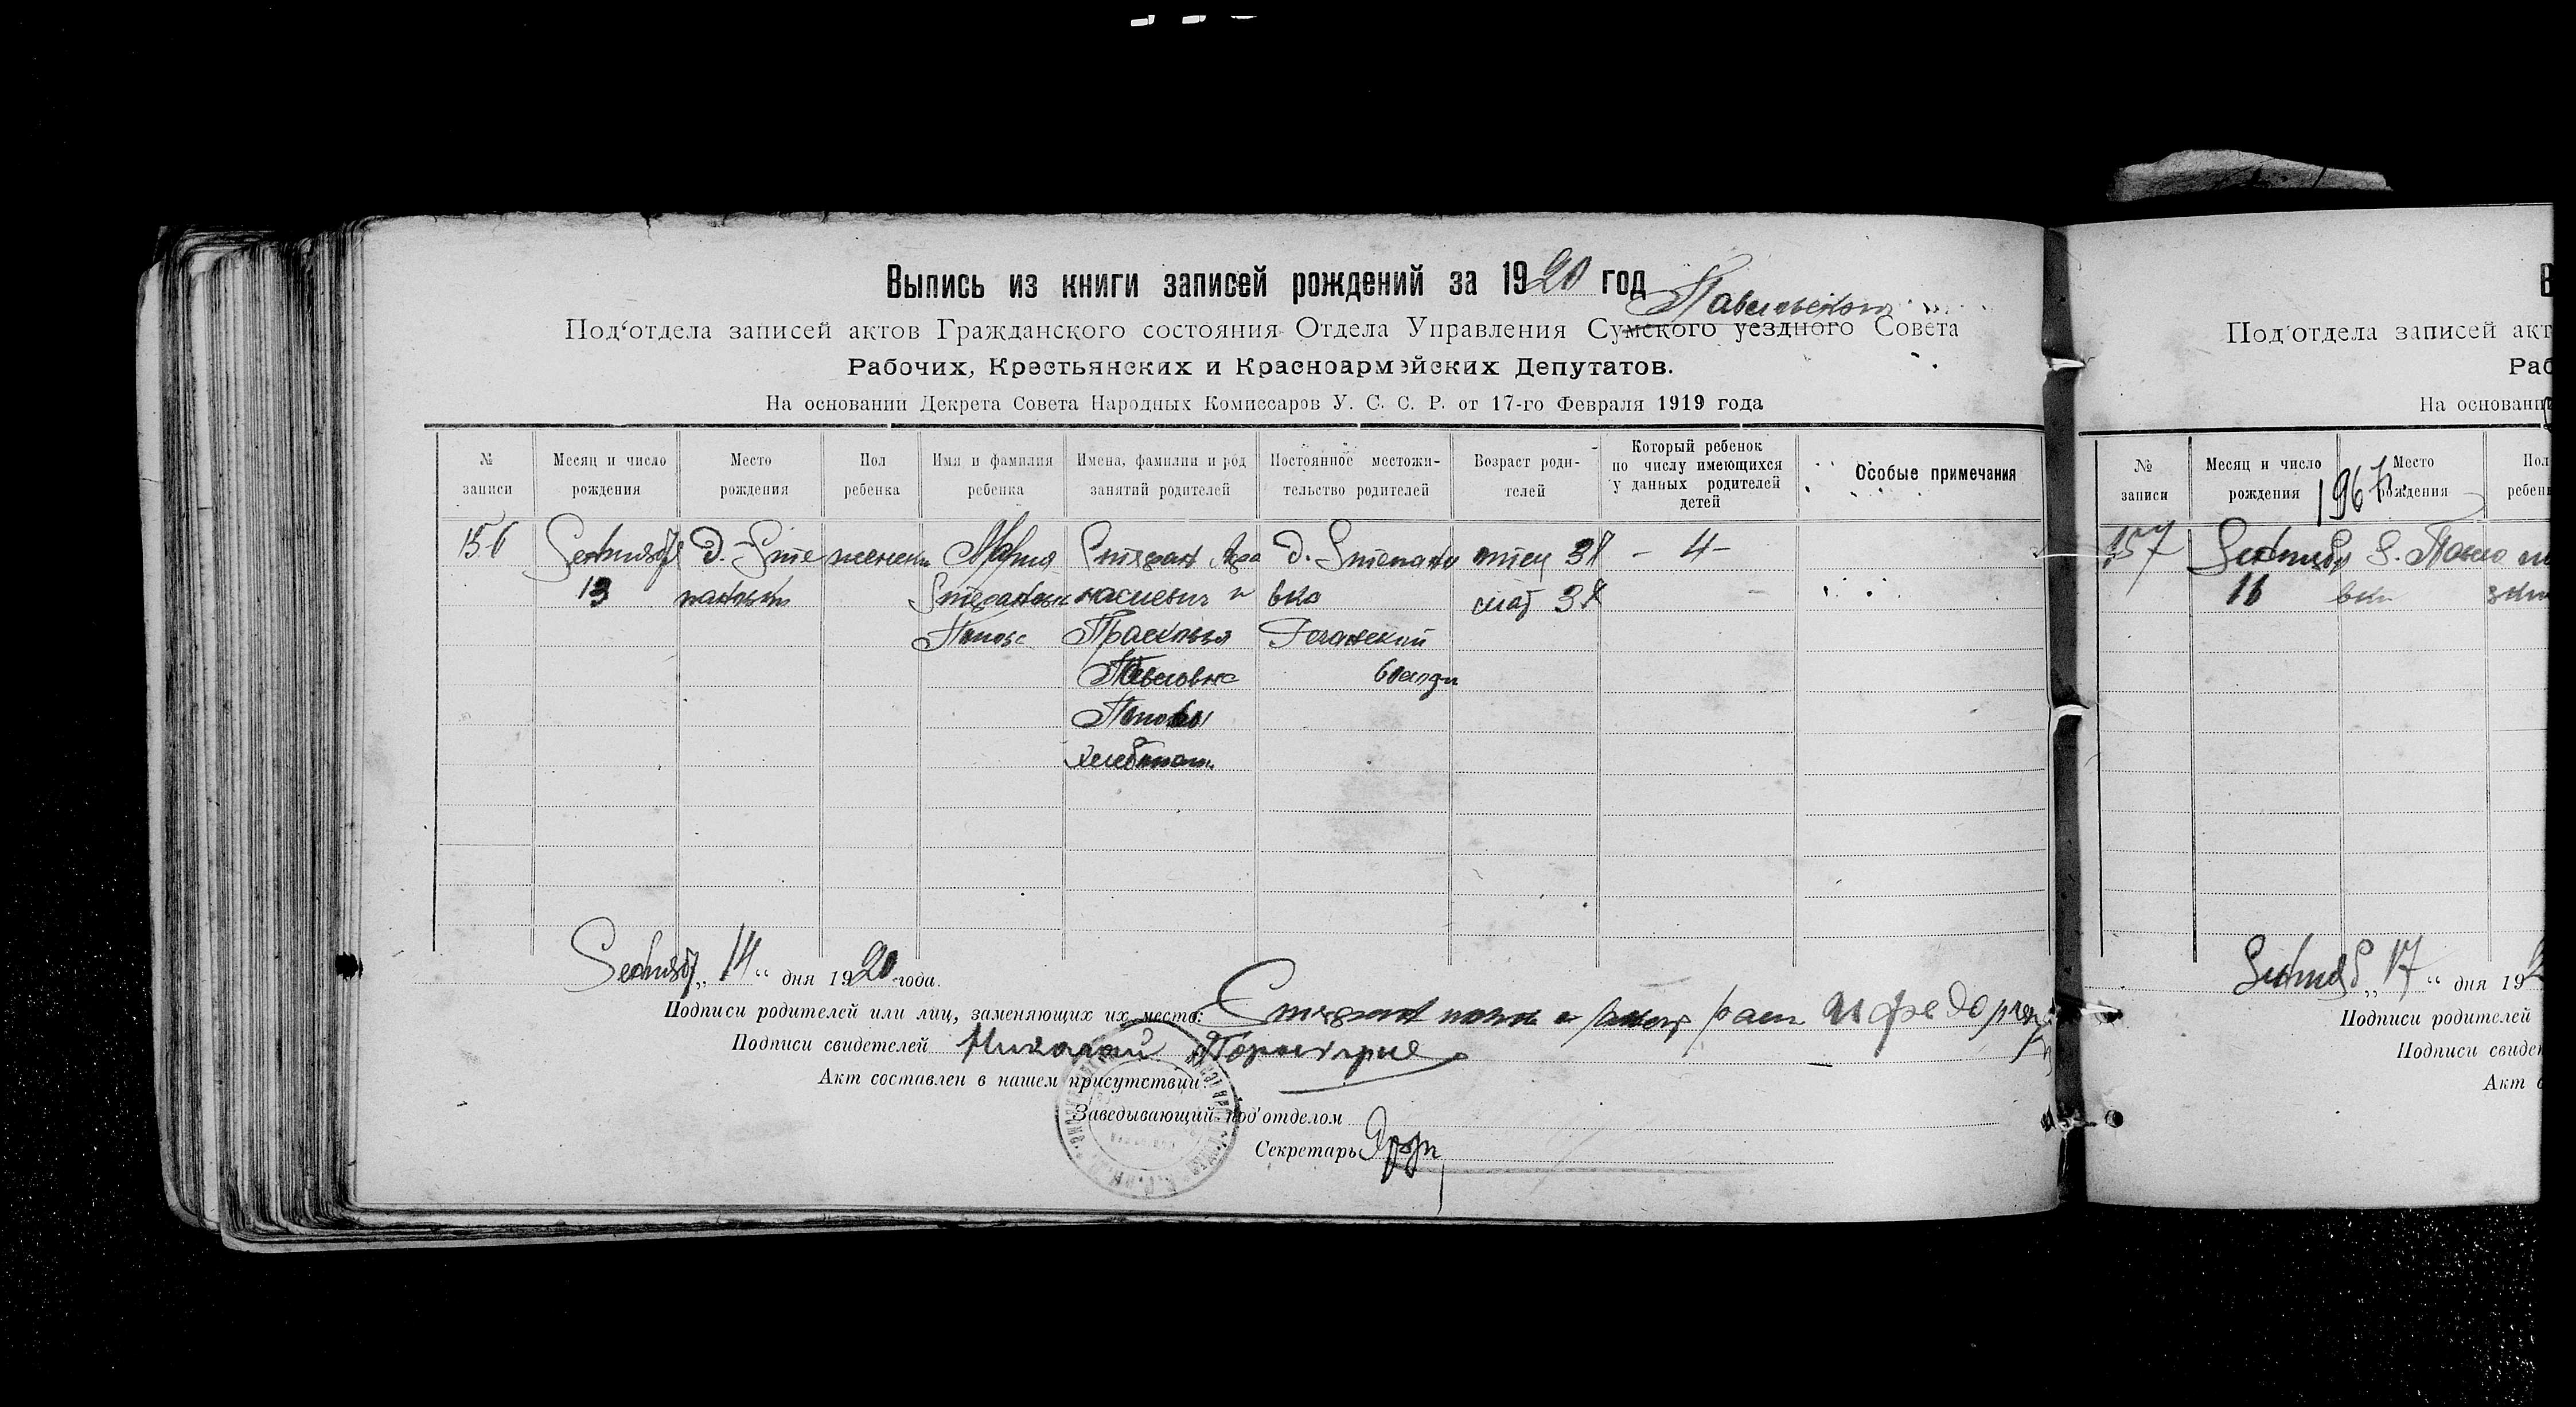 Выпись из книги записей рождений за 1920 год
Павловской
Под'отдела записей актов Гражданского состояния Отдела Управления Сумского уездного Совета
Рабочих, Крестьянских и Красноармейских Депутатов.
На основании Декрета Совета Народных Комиссаров У. С. С. Р. от 17-го Февраля 1919 года
№ записи
Месяц и число рождения
Место рождения
Пол ребенка
Имя и фамилия ребенка
Имена, фамилии и род занятий родителей
Постоянное местожительство родителей
Возраст родителей
Который ребенок по числу имеющихся у данных родителей детей
Особые примечания
156
Сентября
13
д. Сте
пановки
женск
Мария
Степановн
Попова
Степан Афа
насиевич и
Прасковья
Павловна
Поповы
хлебопаш.
д. Степано
вка
волости
отец 37
мат 37
- 4 -
Сентяб „14“ дня 1920 года.
Подписи родителей или лиц, заменяющих их место: Степан
Подписи свидетелей Николай
Акт составлен в нашем присутствии:
Заведывающий под'отделом
Секретарь
В
Под'отдела записей акт
Раб
На основании
№ записи
Месяц и число рождения
Место рождения
Пол ребенк
1967
157
Сентября
16
вки
Сентяб „17“ дня 192
Подписи родителей
Подписи свидет
Акт с